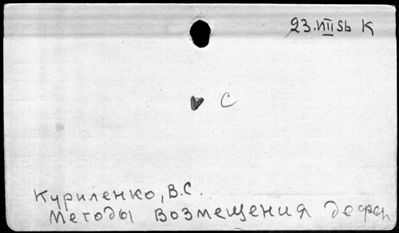 23.VIII 56 К
✓ с
Куриленко, В.С.
Методы Возмещения дефек